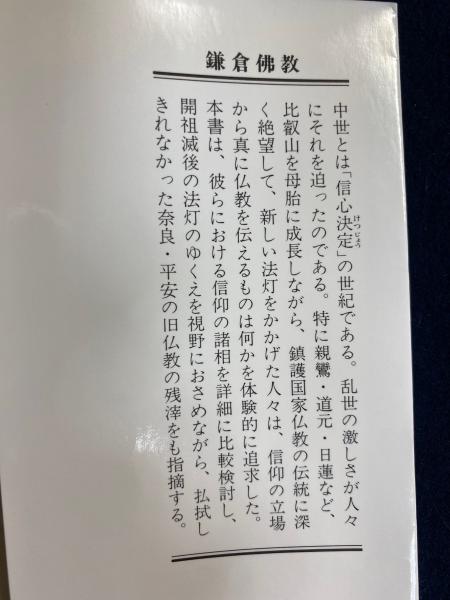 鎌倉佛教
中世とは「信心決定」の世紀である。乱世の激しさが人々
けつじょう
にそれを迫ったのである。特に親鸞・道元・日蓮など、
比叡山を母胎に成長しながら、鎮護国家仏教の伝統に深
く絶望して、新しい法灯をかかげた人々は、信仰の立場
から真に仏教を伝えるものは何かを体験的に追求した。
本書は、彼らにおける信仰の諸相を詳細に比較検討し、
開祖滅後の法灯のゆくえを視野におさめながら、払拭し
きれなかった奈良・平安の旧仏教の残滓をも指摘する。